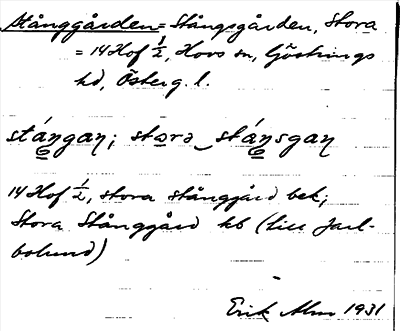 Stånggården = Stångsgården, Stora
= 14 Hof ½, Hovs sn, Göstrings
hd, Österg. l.
stáŋgaŋ; stora stáŋsgaŋ
14 Hof ½, stora stånggård bek;
Stora Stånggård hb (till Jarl-
bolund)
Erik Alm 1931